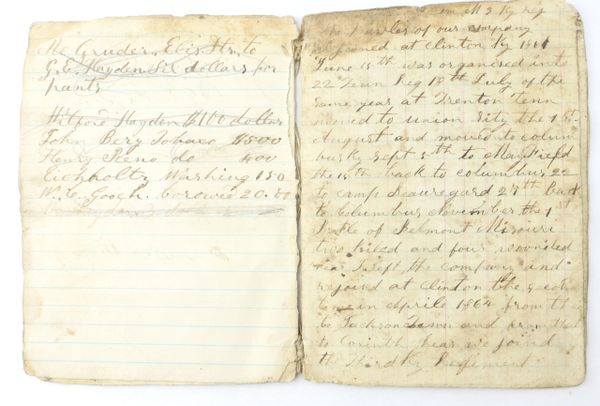 Mc Gruder. Ebis. Dr. to
G.E. Hayden Six dollars for
pants
Hayden $100 dollars
John Berg Tobaco $500
Henry Reno do 400
Eichholtz Washing 150
W. C. Gooch. borowed 20.00
in Ky Reg
of our company
joined at Clinton Ky 1861
June 15th was organised into
22 Tenn Reg 18th July of the
same year at Trenton tenn
moved to union sity the 1st
August and moved to colum
bus ky Sept 5th to Mayfield
the 15th back to columbus 22
to camp beauregard 27th back
to Columbus November the 1st
Battle of Belmont Missouri
two kiled and four wounded
I left the company and
rejoind at Clinton the second
time in Aprile 1862 from th
to Jackson Tenn and from the
to Corinth hear we joind
the Third Ky Regiment